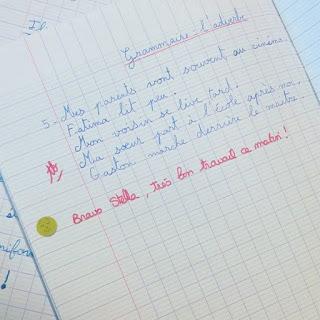 Il
Grammaire : l'adverbe
5 - Mes parents vont souvent au cinéma.
Fatima lit peu.
Mon voisin se live tard.
Ma sœur part à l'école après moi.
Gaston marche derrière le maître.
tb,
Bravo Stella, très bon travail ce matin !